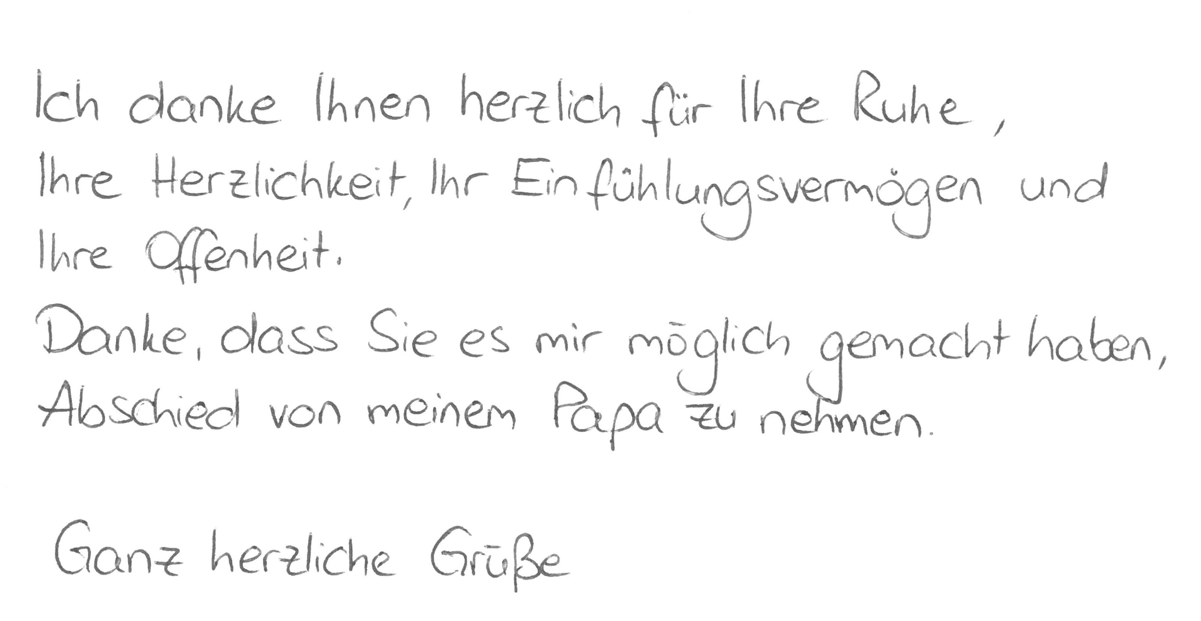 Ich danke Ihnen herzlich für Ihre Ruhe,
Ihre Herzlichkeit, Ihr Einfühlungsvermögen und
Ihre Offenheit.
Danke, dass Sie es mir möglich gemacht haben,
Abschied von meinem Papa zu nehmen.
Ganz herzliche Grüße